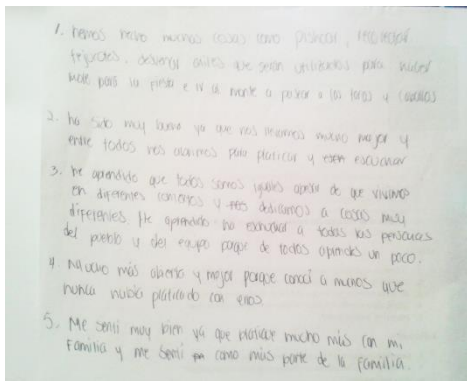 1. hemos hecho muchas cosas como pishcar, recolectar
frijoles, desvenar chiles que serán utilizados para hacer
mole para la fiesta e ir al monte a pasear a los toros y caballos
2. ha sido muy bueno ya que nos llevamos mucho mejor y
entre todos nos reunimos para platicar y escuchar
3. he aprendido que todos somos iguales apesar de que vivimos
en diferentes contextos y nos dedicamos a cosas muy
diferentes. He aprendido ha escuchar a todas las personas
del pueblo y del equipo porque de todos aprendes un poco.
4. Mucho más abierta y mejor porque conocí a menos que
nunca había platicado con ellos
5. Me sentí muy bien ya que platique mucho más con mi
familia y me sentí como más parte de la familia.